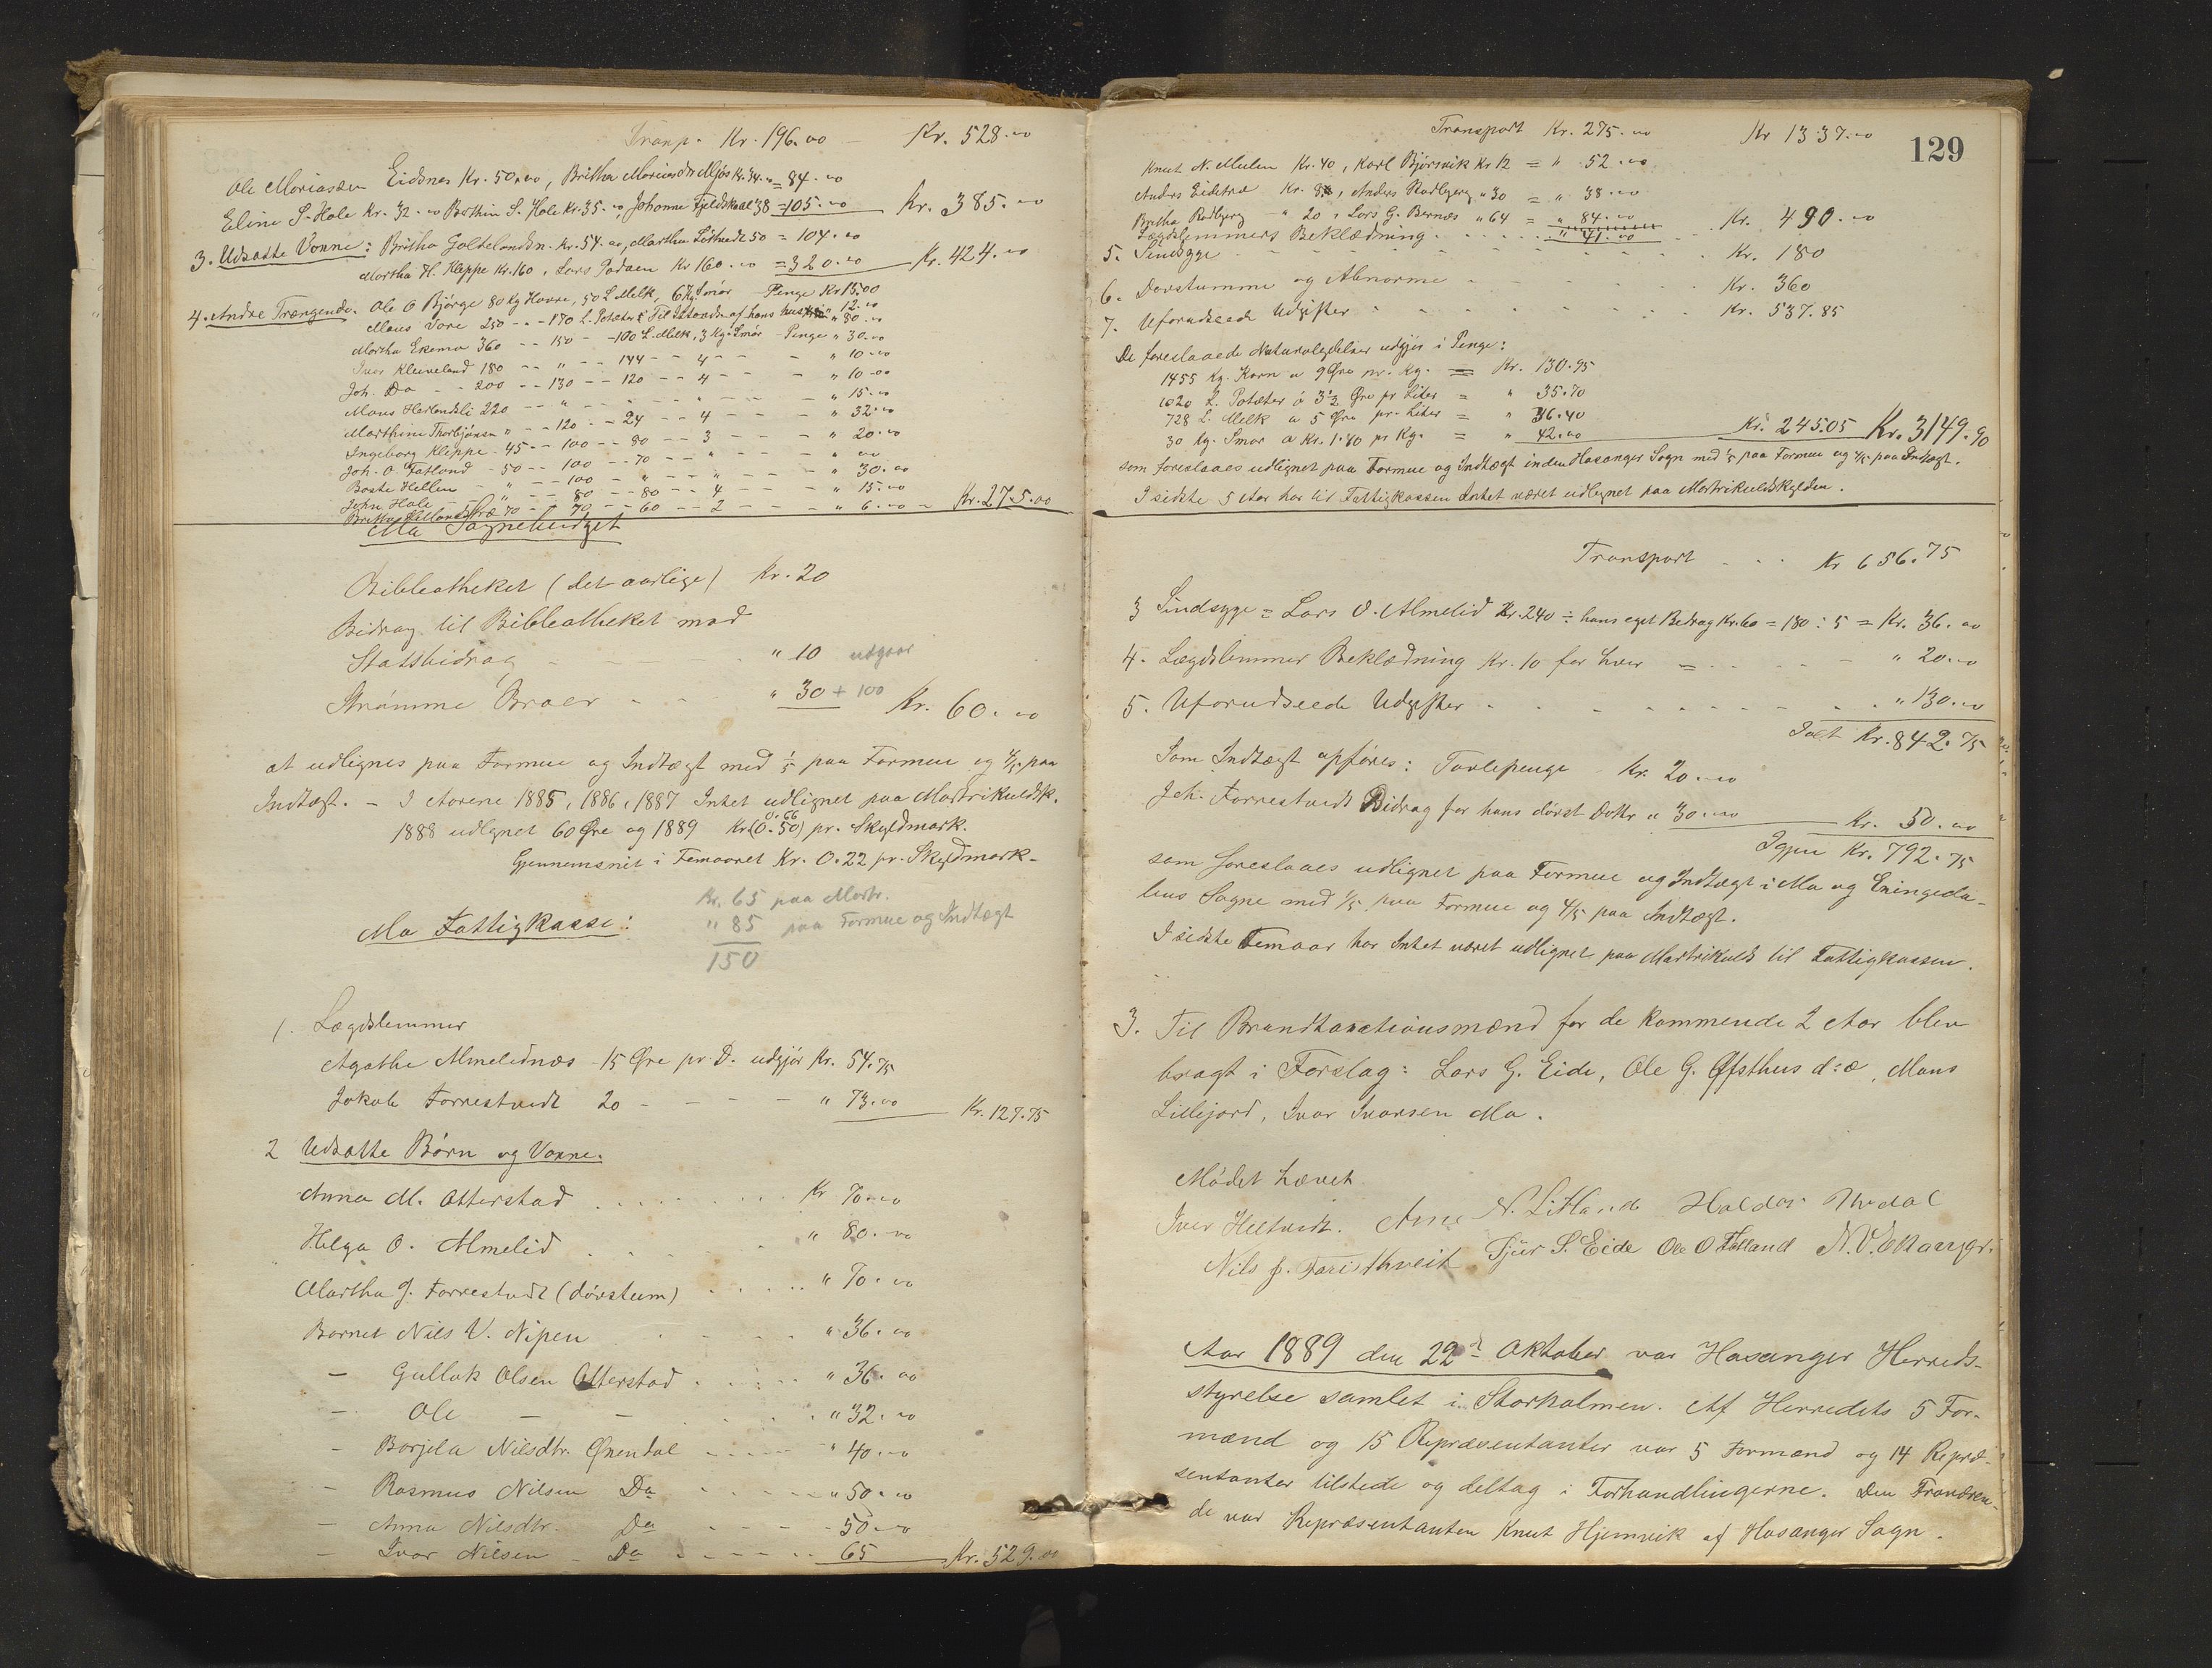 Transp. Kr. 196.00 — Kr. 528.00
Ole Mariassen Eidsnes Kr. 50.00, Britha Mariasdr Mjøs Kr. 34.00 = 84.00
Eline S. Hole Kr. 32.00 Bothin S. Hole Kr. 35.00, Johanne Fjeldskaal 38 = 105.00 Kr. 385.00
3. Udsatte Voxne: Britha Goltelandsn. Kr. 54.00, Martha Löttvedt 50 = 104.00
Martha H. Kleppe Kr. 160, Lars Kr 160.00 = 320.00 Kr. 424.00
4. Andre Trængende. Ole O Bjørge 80 Kg Havre, 50 L Melk, 6 Kg Smør - Penge Kr 15.00
Maus Vare 250 - - 170 L. Poteter & Til Istandn. af hans hus " 12.00
Martha Ekema 360 - - 150 - - 100 L. Melk, 3 Kg. Smør - Penge " 30.00
Ivar Kleiveland 180 - - " - - 144 - - 4 - - - " 10.00
Joh. Do - - 200 - - 130 - - 120 - - 4 - - - " 10.00
Mons Herlandsli 220 - - " - - - " 15.00
Marthine Thorbjönsen " - - 120 - - 24 - - 4 - - - " 32.00
Ingeborg Kleppe - 45 - - 100 - - 80 - - 3 - - - " 20.00
Joh. O. Fatland - 50 - - 100 - - 70 - - " - - - " 00
Baste Hellen - " - - 100 - " - - " - - - " 30.00
John Hole - " - - 80 - - 80 - - 4 - - - " 15.00
Britha 70 - - 70 - - 60 - - 2 - - - " 6.00 - Kr. 275.00
Mo Sognebudget
Bibleotheket (det aarlige) Kr. 20
Bidrag til Bibleotheket mod
Statsbidrag - - - " 10 udgaar
Strømme Broer - - - " 30 + 100 Kr. 60.00
at udlignes paa Formue og Indtægt med 1/5 paa Formue og 4/5 paa
Indtægt. - I Aarene 1885, 1886, 1887 Intet udlignet paa Matrikuldsk.
0.66
1888 udlignet 60 Øre og 1889 Kr (0.50) pr. Skyldmark.
Gjennemsnit i Femaaret Kr. 0.22 pr. Skyldmark -
Kr. 65 paa Matr.
Mo Fattigkasse: " 85 paa Formue og Indtægt
150
1. Lægdslemmer
Agathe Almelidnæs - 15 Øre pr. D. udgjør Kr. 54.75
Jakob Forrestvedt 20 - - - - " 73.00 Kr. 127.75
2 Udsatte Børn og Voxne.
Anna M. Otterstad . . . . . . Kr 70.00
Helga O. Almelid . . . . . . " 80.00
Martha J. Forrestvedt (døvstum) . . . . " 70.00
Barnet Nils V. Nipen . . . . " 36.00
- Gullak Olsen Otterstad . . . . " 36.00
- Ole - - . . . . " 32.00
- Borjela Nilsdtr. Øxendal - - - - " 40.00
- Rasmus Nilsen Do - - - - " 50.00
- Anna Nilsdtr. Do - - - - 50.00
- Ivar Nilsen - Do - - - - 65 Kr. 529.00
129
Transport Kr. 275.00 Kr 1337.00
Knut N. Mulen Kr. 40, Karl Bjørsvik Kr 12 = " 52.00
Anders Eidetræ Kr. 8, Anders Rødbjerg " 30 = " 38.00
Britha Rødbjerg - " 20, Lars G. Bernæs " 64 = " 84.00
Lægdslemmers Beklædning . . . . . . " 41.00 Kr. 490.00
5. Sindsyge - - - - - Kr. 180
6. Døvstumme og Abnorme - - - - Kr. 360
7. Uforudseede Udgifter - - - - Kr. 537.85
De foreslaaede Naturalydelser udgjør i Penge:
1455 Kg. Korn a 9 Øre pr. Kg. = Kr. 130.95
1020 L. Potæter á 3½ Øre pr Liter = " 35.70
728 L. Melk a 5 Øre pr. Liter = " 36.40
30 Kg. Smør a Kr. 1.40 pr Kg. = " 42.00 Kr. 245.05 Kr. 3149.90
som foreslaaes udlignet paa Formue og Indtægt inden Hosanger Sogn med 1/5 paa Formue og 4/5 paa Indtægt.
I sidste 5 Aar har til Fattigkassen Intet været udlignet paa Matrikulskylden.
Transport . . . Kr 656.75
3 Sindsyge = Lars O. Almelid Kr. 240 ÷ hans eget Bedrag Kr. 60 = 180 : 5 = Kr. 36.00
4. Lægdslemmer Beklædning Kr. 10 for hver = - - - " 20.00
5. Uforudseede Udgifter - - - - - - " 130.00
Ialt Kr. 842.75
Som Indtægt opføres: Tavlepenge - Kr. 20.00
Joh. Forrestvedt Bidrag for hans døvst. Dattr " 30.00 Kr. 50.00
Igjen Kr. 792.75
som foreslaaes udlignet paa Formue og Indtægt i Mo og Exingeda-
lens Sogne med 1/5 paa Formue og 4/5 paa Indtægt.
I sidste Femaar har Intet været udlignet paa Matrikuls til Fattigkassen.
3. Til Brandtaxationsmænd for de kommende 2 Aar blev
bragt i Forslag: Lars G. Eide, Ole G. Øfsthus d:æ, Mons
Lillejord, Ivar Ivarsen Mo.
Mødet hævet
Iver Heltvedt. Arne N. Litland Haldor Mydal
Nils J. Faristhveit Sjur S. Eide Ole O Fatland N. V.
Aar 1889 den 22d Oktober var Hosanger Herreds-
styrelse samlet i Storholmen. Af Herredets 5 For-
mænd og 15 Repræsentanter var 5 Formænd og 14 Repræ-
sentanter tilstede og deltog i Forhandlingerne. Den Fraværen-
de var Repræsentanten Knut Hjemvik af Hosanger Sogn.